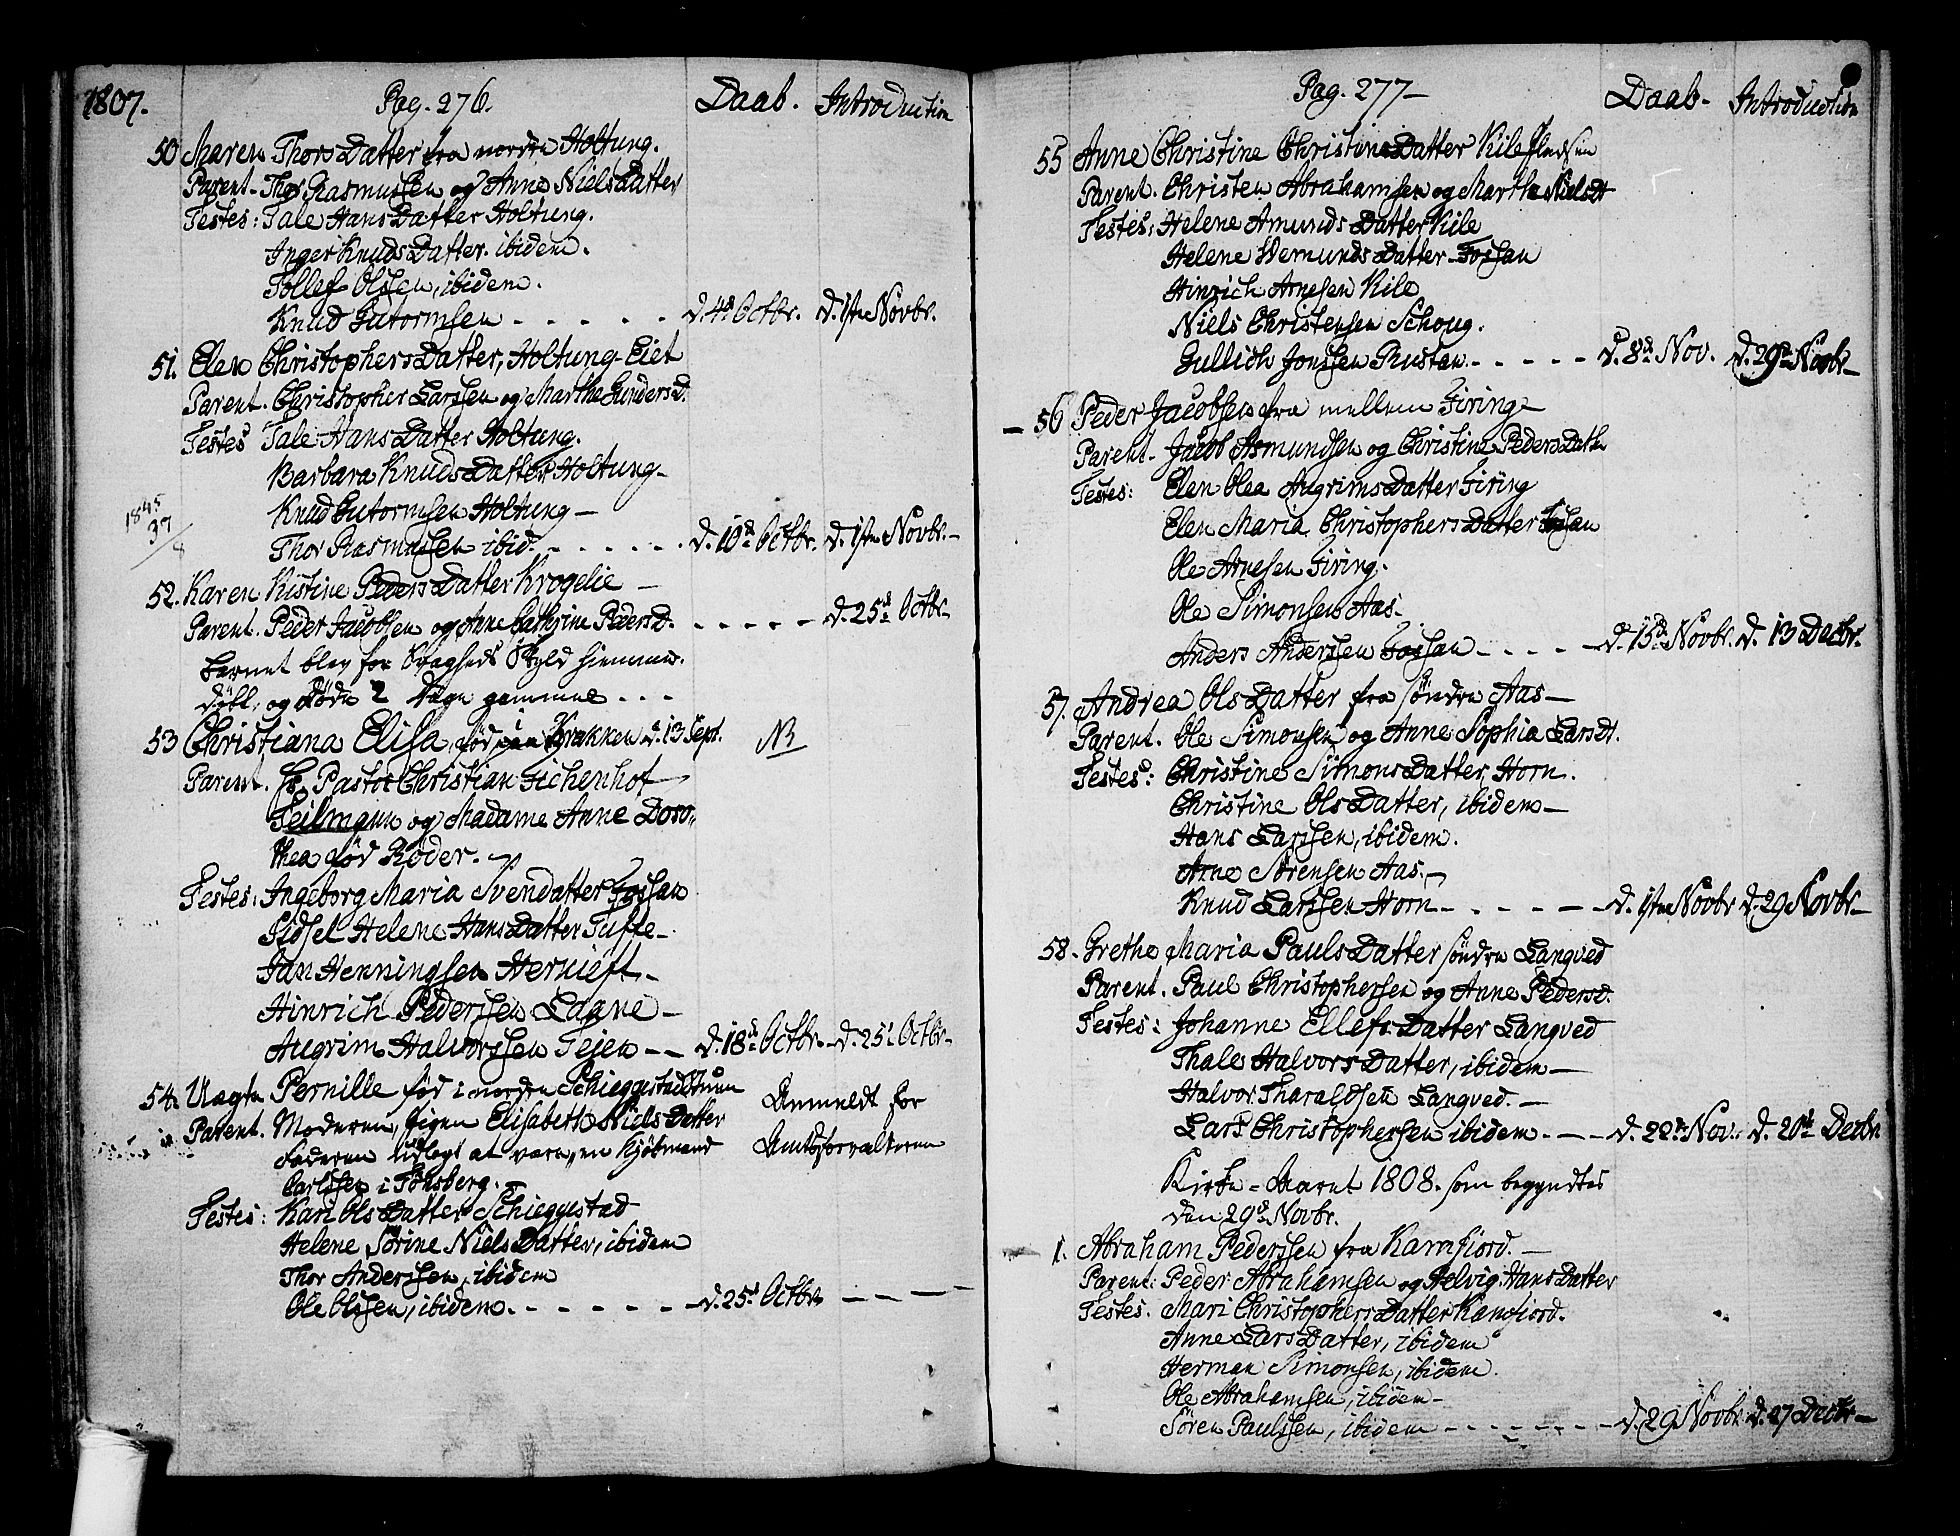 1807. Pag. 276. Daab. Introduction
50 Maren ThorsDatter fra nordre Holtung.
Parent- Thor Rasmussen og Anne NielsDatter
Testes: Tale HansDatter Holtung.
Inger KnudsDatter. ibidem.
Tollef Olssen, ibidem.
Knud Gutormsen - - - - - d. 4d Octbr. d. 1ste Novbr.
51. Elen ChristophersDatter, Holtung-Eiet
Parent. Christopher Larssen og Marthe GundersD.
Testes Tale HansDatter Holtung.
Barbara KnudsDatter Holtung-
Knud Gutormsen Holtung-
1845
37
8
Thor Rasmussen ibid. - - - - - d. 10d Octbr. d. 1ste Novbr.-
52. Karen Kistine PedersDatter Krogelie -
Parent. Peder Jacobsen og Anne Cathrine PedersD. - - - - - d. 25d Octbr.
barnet blev for Svagheds Skyld hiemme-
døbt, og døde 2 Dage gammel - - -
53 Christiana Elisa, fød i Krakken d. 13 Sept. NB
Parent. Hr. Pastor Christian Eichenhof
Teilmann og Madame Anne Doro,,
thea fød Röder. -
Testes: Ingeborg Maria SvenDatter Fossan
Sidsel Helene HansDatter Tuffte-
Jan Henningsen Hernieft-
Hinrich Pederssen Laane-
Augrim Halvorssen Teien -- d. 18d Octbr. - d. 25d Octbr-
54. Uægte Pernille fød i nordre Schieggestadstuen Anmeldt for
Parent. Moderen, Pigen Elisabeth NielsDatter
Faderen udlagt at være, en Kjøbmand Amtsforvalteren
Carlssen i Tønsberg. -
Testes: Kari OlsDatter Schieggestad
Helene Sørine NielsDatter, ibidem
Thor Anderssen, ibidem
Ole Olssen, ibidem. - - - - - - d. 25d Octbr - - - -
Pag. 277- Daab- Introduction
55 Anne Christine ChristensDatter Kile
Parent. Christen Abrahamsen og Marthe NielsDt
Testes: Helene AmundsDatter Kile
Helene WermundsDatter Fossan
Hinrich Arnesen Kile
Niels Christensen Schoug.
Gullich Jonssen Rustan - - - - - d. 8d Nov. d. 29d Novbr-
- 56 Peder Jacobsen fra mellem Firing-
Parent- Jacob Asmundsen og Christine PedersDatter
Testes: Elen Olea AugrimsDatter Firing
Elen Maria ChristophersDatter Fossan
Ole Arnesen Firing.
Ole Simonsen Aas-
Anders Anderssen Fossan - - - - - d. 15d Novbr. d. 13 Decbr.
57. Andrea OlsDatter fra søndre Aas-
Parent. Ole Simonsen og Anne Sophia LarsDt.
Testes: Christine SimonsDatter, Horn.
Christine OlsDatter, ibidem-
Hans Larssen, ibidem.
Arne Sørensen Aas. -
Knud Larssen Horn - - - - - d. 1ste Novbr d. 29 Novbr-
58. Grethe Maria PaulsDatter søndre Langved
Parent. Paul Christophersen og Anne PedersD.
Testes: Johanne EllefsDatter Langved
Thale HalvorsDatter, ibidem-
Halvor Tharaldsen Langved. -
Lars Christophersen ibidem - - - d. 22de Nov. d. 20de Decbr
Kirke-Aaret 1808. som begyndtes
den 29d Novbr.
1. Abraham Pederssen fra Kamfiord. -
Parent: Peder Abrahamsen og Helvig HansDatter
Testes. Mari ChristophersDatter Kamfiord.
Anne LarsDatter, ibidem
Herman Simonsen, ibidem.
Ole Abrahamsen, ibidem-
Søren Paulssen, ibidem - - - - - - - d. 29 Novbr d. 27 Decbr-